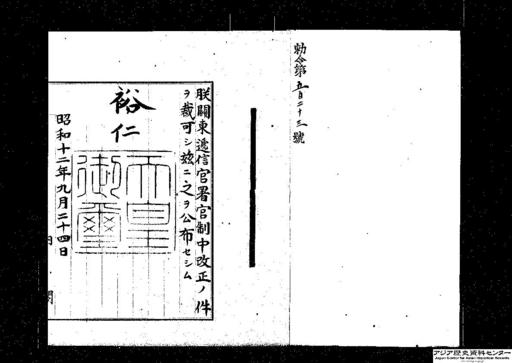 勅令第五百二十三號
朕關東遞信官署官制中改正ノ件
ヲ裁可シ玆ニ之ヲ公布セシム
裕仁
天皇御璽
昭和十二年九月二十四日
アジア歴史資料センター
Japan Center for Asian Historical Records